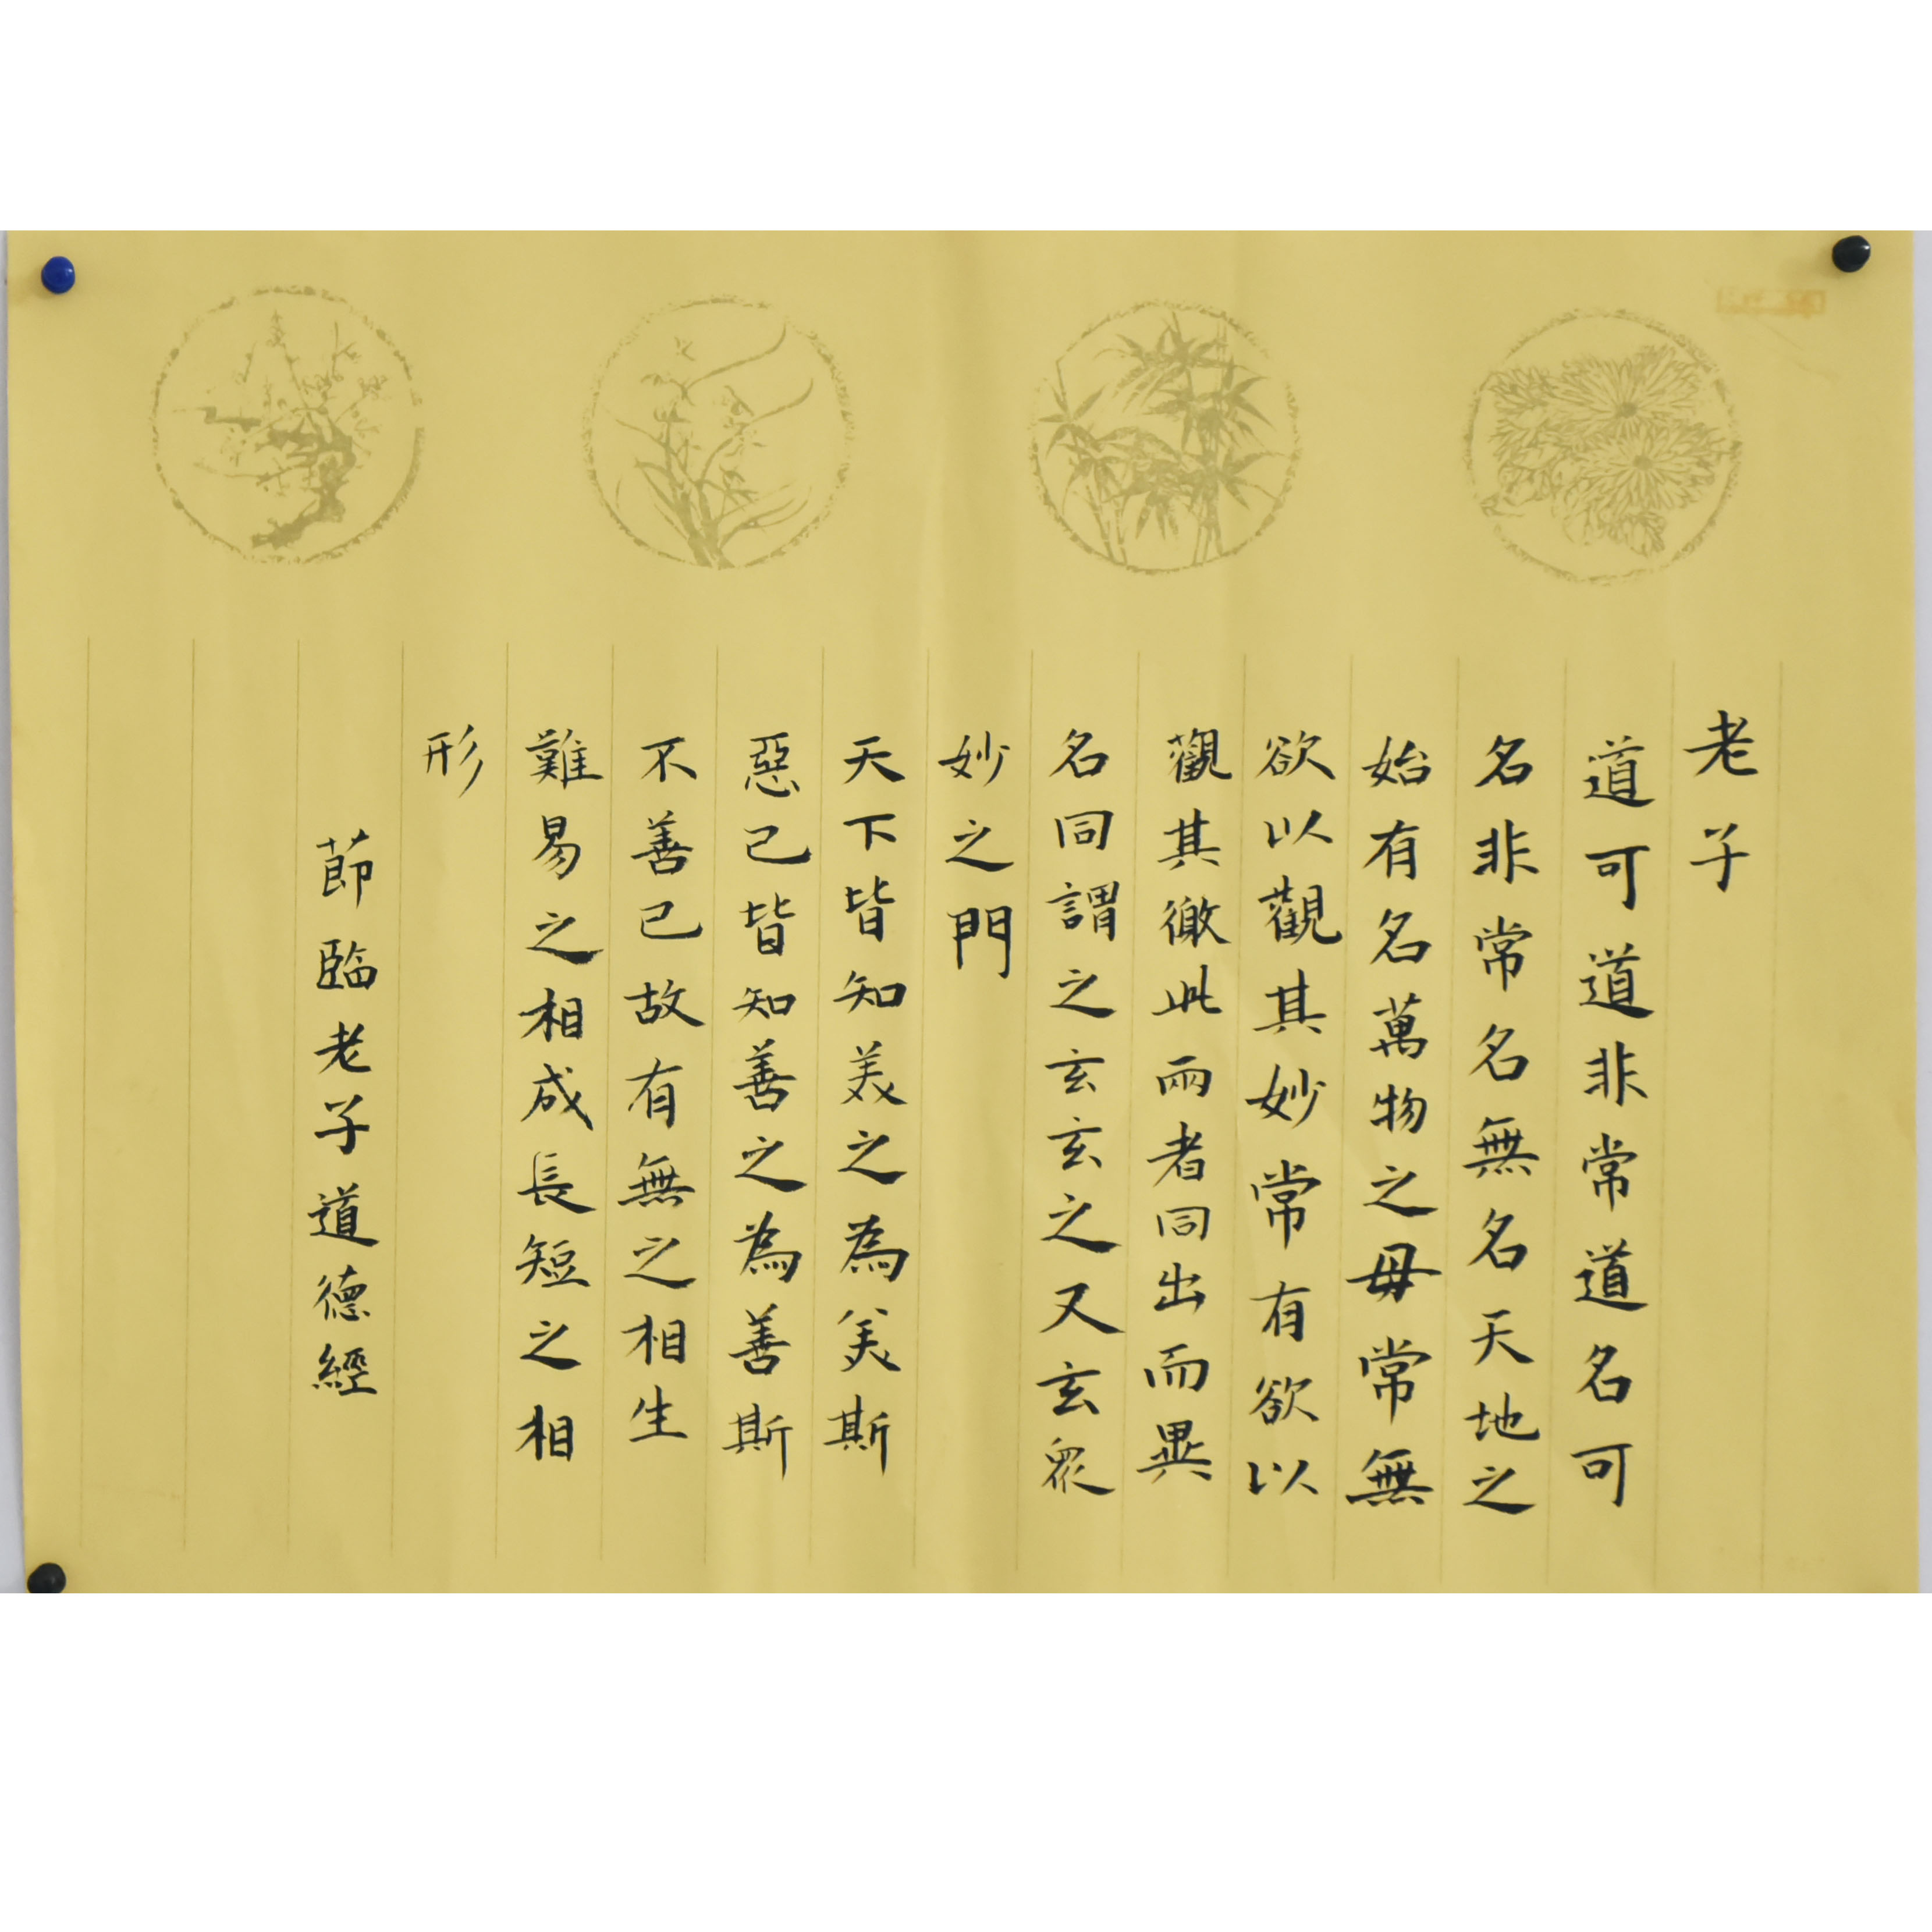 老子
道可道非常道名可
名非常名無名天地之
始有名萬物之毋常無
欲以觀其妙常有欲以
觀其徼此兩者同出而異
名同謂之玄玄之又玄衆
妙之門
天下皆知美之為美斯
惡已皆知善之為善斯
不善已故有無之相生
難易之相成長短之相
形
節臨老子道德經